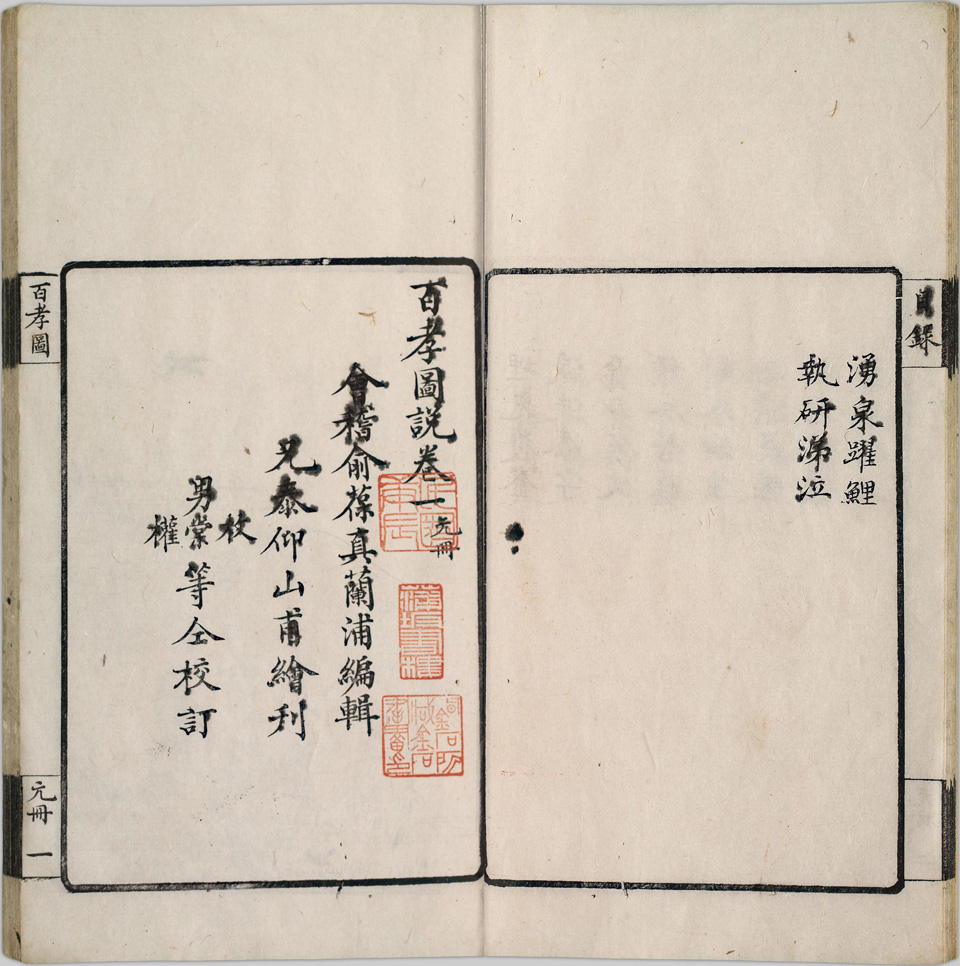 目錄
湧泉躍鯉
執研涕泣
百孝圖說卷一 元冊
會稽俞葆真蘭浦編輯
兄泰仰山甫繪刋
枚
男棠等仝校訂
權
百孝圖
元冊
一